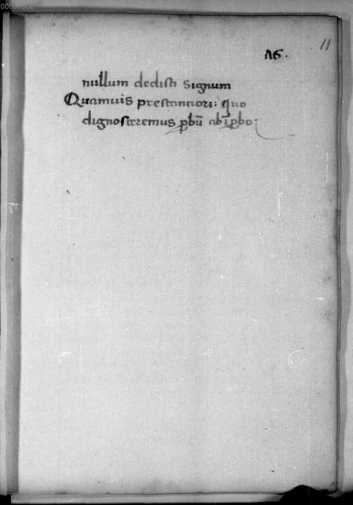 11
16.
nullum dedisti signum
Quamuis prestantiori: quo
dignosceremus ꝓbū ab īꝓbo: